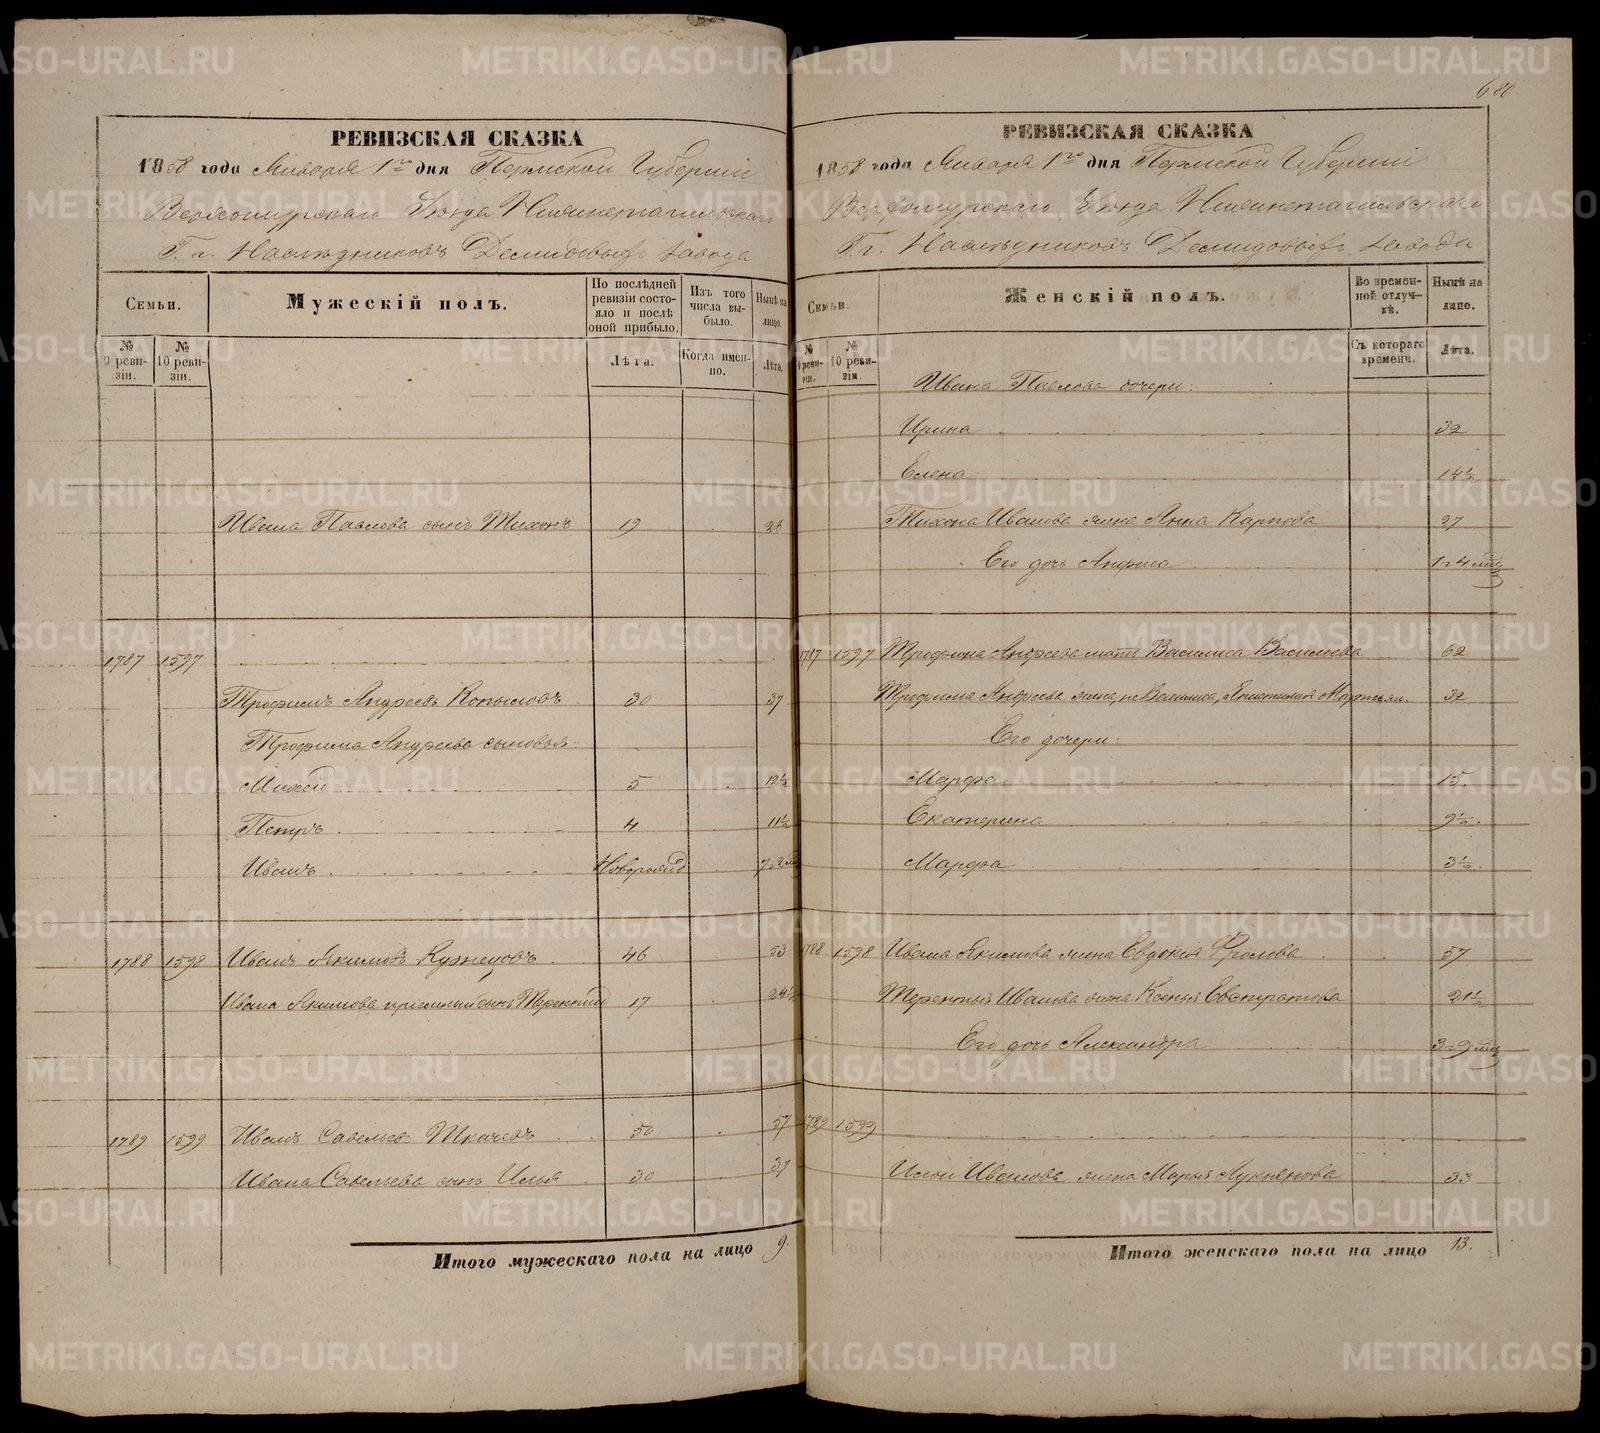 РЕВИЗСКАЯ СКАЗКА
1858 года Января 1го дня Пермской Губерніи
Верхотурскаго Уѣзда Нижнетагильскаго
Г. г. Наслѣдниковъ Демидовыхъ завода
Семьи.
Мужескій полъ.
По послѣдней ревизіи состояло и послѣ оной прибыло.
Изъ того числа выбыло.
Нынѣ на лицо.
№ 9 ревизіи.
№ 10 ревизіи.
Лѣта.
Когда именно.
Лѣта.
Ивана Павлова сынъ Тихонъ 19 26
1787 1597
Трофимъ Андреевъ Копыловъ 30 37
Трофима Андреева сыновья:
Михей 5 12½
Петръ 4 11½
Иванъ Новорожд 7-2 мѣс
1788 1598 Иванъ Якимовъ Кузнецовъ 46 53
Ивана Якимова пріемный сынъ Терентій 17 24½
1789 1599 Иванъ Савельевъ Ткачевъ 50 57
Ивана Савельева сынъ Илья 30 37
Итого мужескаго пола на лицо 9.
680
РЕВИЗСКАЯ СКАЗКА
1858 года Января 1го дня Пермской Губерніи
Верхотурскаго Уѣзда Нижнетагильскаго
Г. г. Наслѣдниковъ Демидовыхъ завода
Семьи.
Женскій полъ.
Во временной отлучкѣ.
Нынѣ на лицо.
№ 9 ревизіи.
№ 10 ревизіи.
Съ котораго времени.
Лѣта.
Ивана Павлова дочери:
Ирина 32
Елена 14½
Тихона Иванова жена Анна Карпова 27
Его дочь Анфиса 1-4 мѣс
1787 1597 Трофима Андреева мать Василиса Васильева 62
Трофима Андреева жена, не Василиса, а 32
Его дочери:
Марфа 15.
Екатерина 9½.
Марфа 3½.
1788 1598 Ивана Якимова жена Евдокія Фролова 57
Терентья Иванова жена Ксенья Евстратова 21½
Его дочь Александра 3-9 мѣс
1789 1599
Ильи Иванова жена Марья Лукьянова 33
Итого женскаго пола на лицо 13.
METRIKI.GASO-URAL.RU